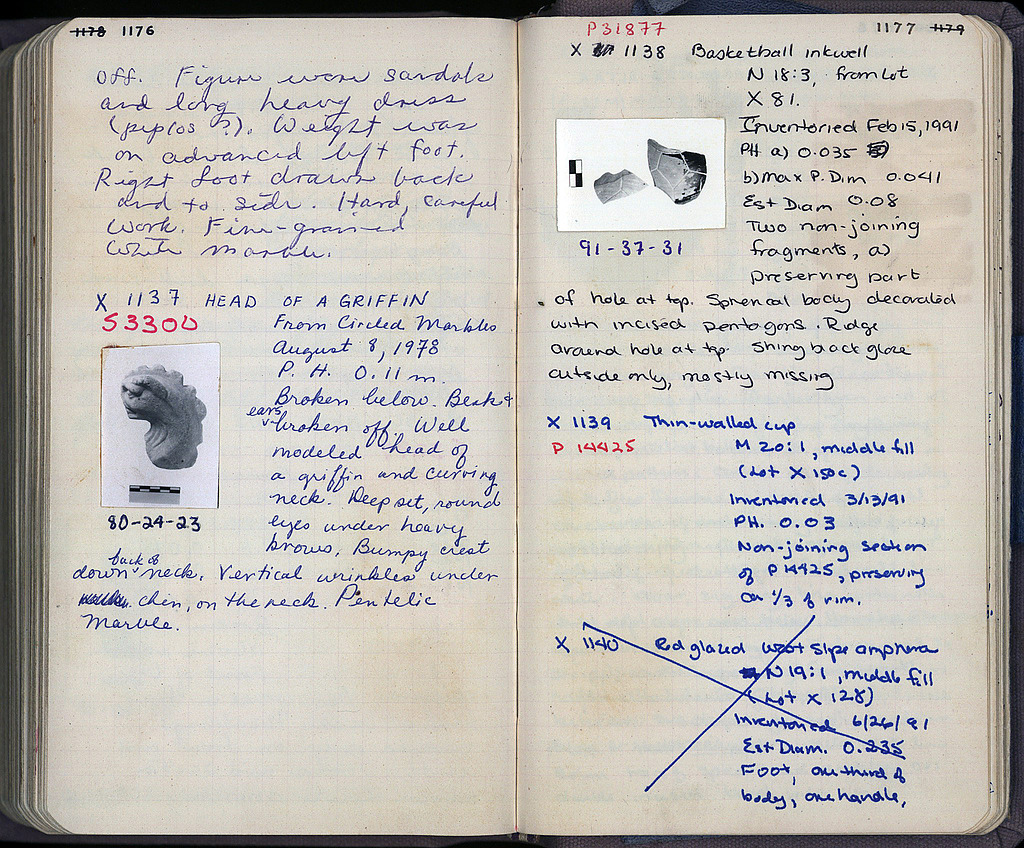 1178 1176
off. Figure wears sandals
and long heavy dress
(peplos?). Weight was
on advanced left foot.
Right foot drawn back
and to side. Hard, careful
work. Fine-grained
White marble.
X 1137 HEAD OF A GRIFFIN
S3300
From Circled Marbles
August 8, 1978
P. H. 0.11 m.
Broken below. Beak &
ears broken off. Well
modeled head of
a griffin and curving
neck. Deep set, round
eyes under heavy
brows. Bumpy crest
80-24-23
down back of neck. Vertical wrinkles under
chin, on the neck. Pentelic
Marble.
P31877
1177 1179
X 1138 Basketball inkwell
N 18:3, from Lot
X 81.
Inventoried Feb 15, 1991
PH a) 0.035
b) max P. Dim 0.041
Est Diam 0.08
Two non-joining
fragments, a)
preserving part
91-37-31
of hole at top. Spherical body decorated
with incised pentagons. Ridge
around hole at top. Shiny black glaze
outside only, mostly missing
X 1139 Thin-walled cup
P 14425
M 20:1, middle fill
(Lot X 150c)
Inventoried 3/13/91
PH. 0.03
Non-joining section
of P14425, preserving
ca 1/3 of rim.
X 1140 Red glazed West Slope amphora
N 19:1, middle fill
(Lot X 128)
Inventoried 6/26/91
Est Diam. 0.235
Foot, one third of
body, one handle,